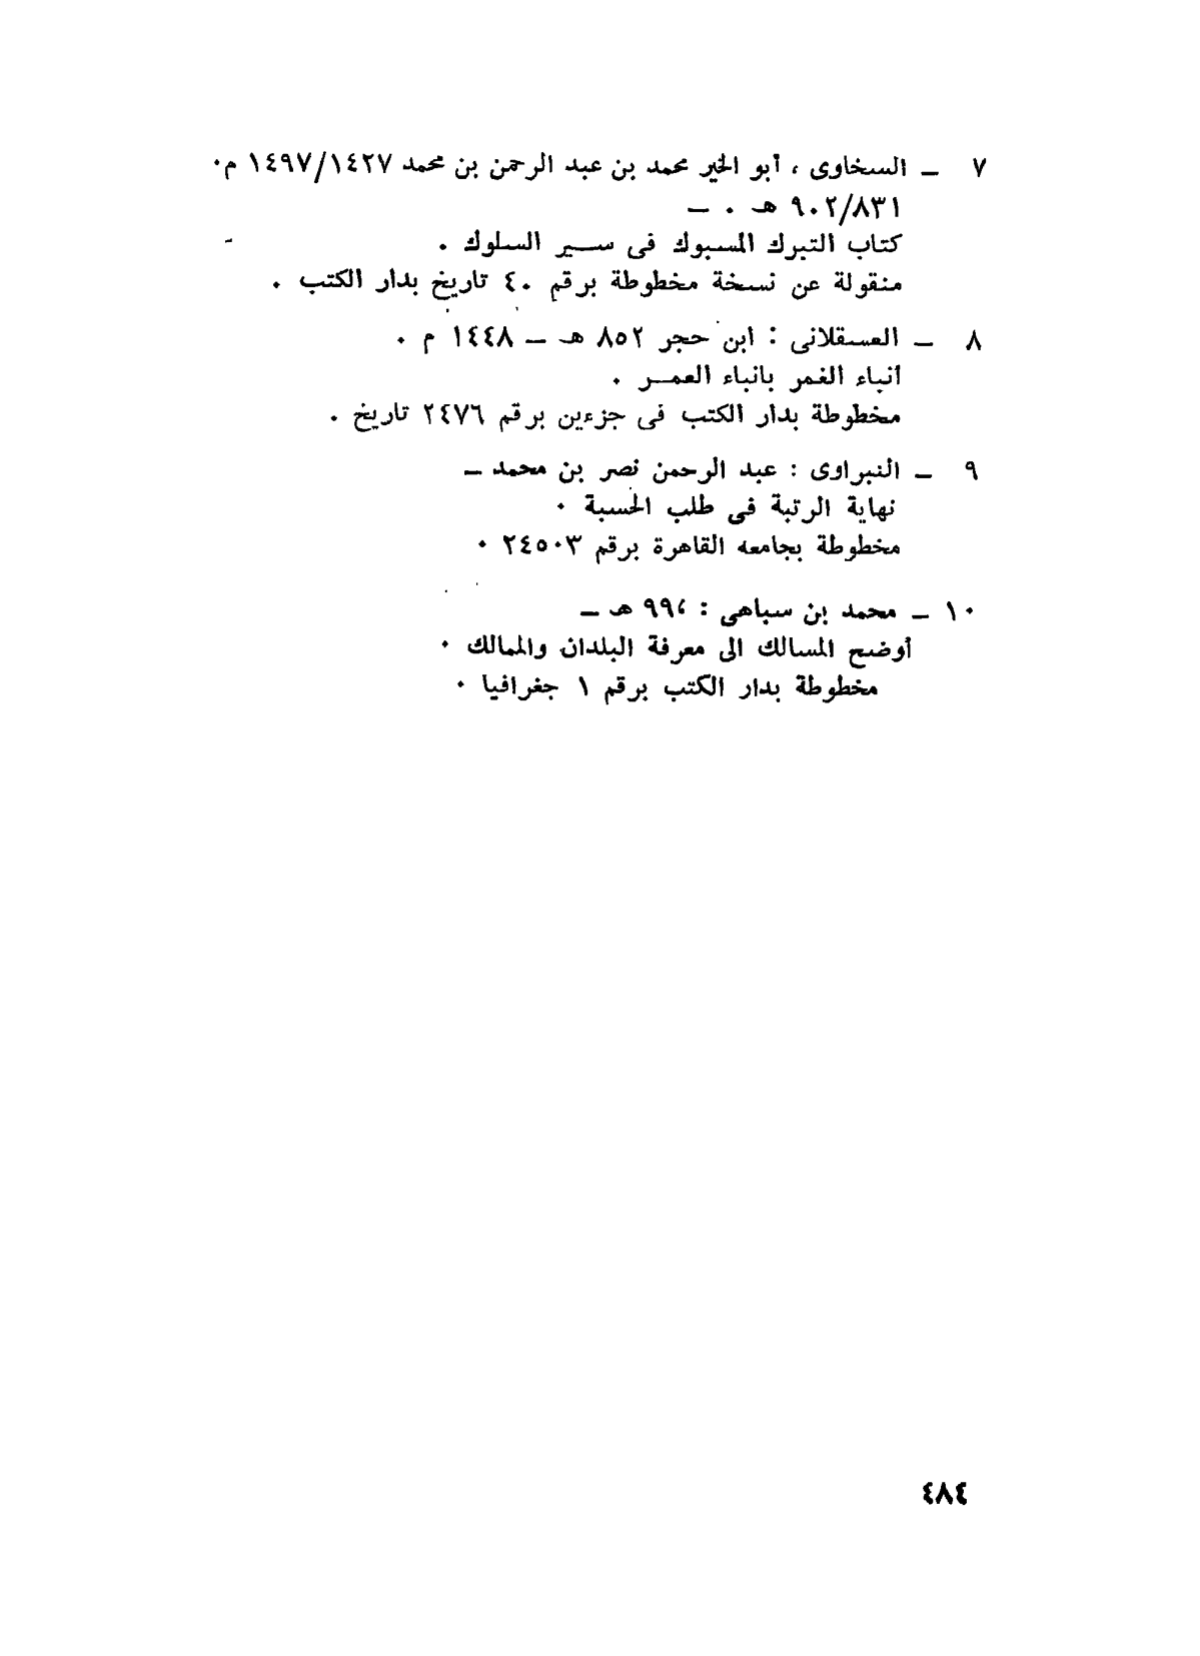 ٧ – السخاوى ، أبو الخير محمد بن عبد الرحمن بن محمد ١٤٩٧/١٤٢٧ م٠
٩٠٢/٨٣١ هـ ٠ –
كتاب التبرك المسبوك فى سير السلوك ٠
منقولة عن نسخة مخطوطة برقم ٤٠ تاريخ بدار الكتب ٠
٨ – العسقلانى : ابن حجر ٨٥٢ هـ – ١٤٤٨ م ٠
أنباء الغمر بانباء العمر ٠
مخطوطة بدار الكتب فى جزءين برقم ٢٤٧٦ تاريخ ٠
٩ – النبراوى : عبد الرحمن نصر بن محمد –
نهاية الرتبة فى طلب الحسبة ٠
مخطوطة بجامعه القاهرة برقم ٢٤٥٠٣ ٠
١٠ – محمد بن سباهى : هـ –
أوضح المسالك الى معرفة البلدان والممالك ٠
مخطوطة بدار الكتب برقم ١ جغرافيا ٠
٤٨٤